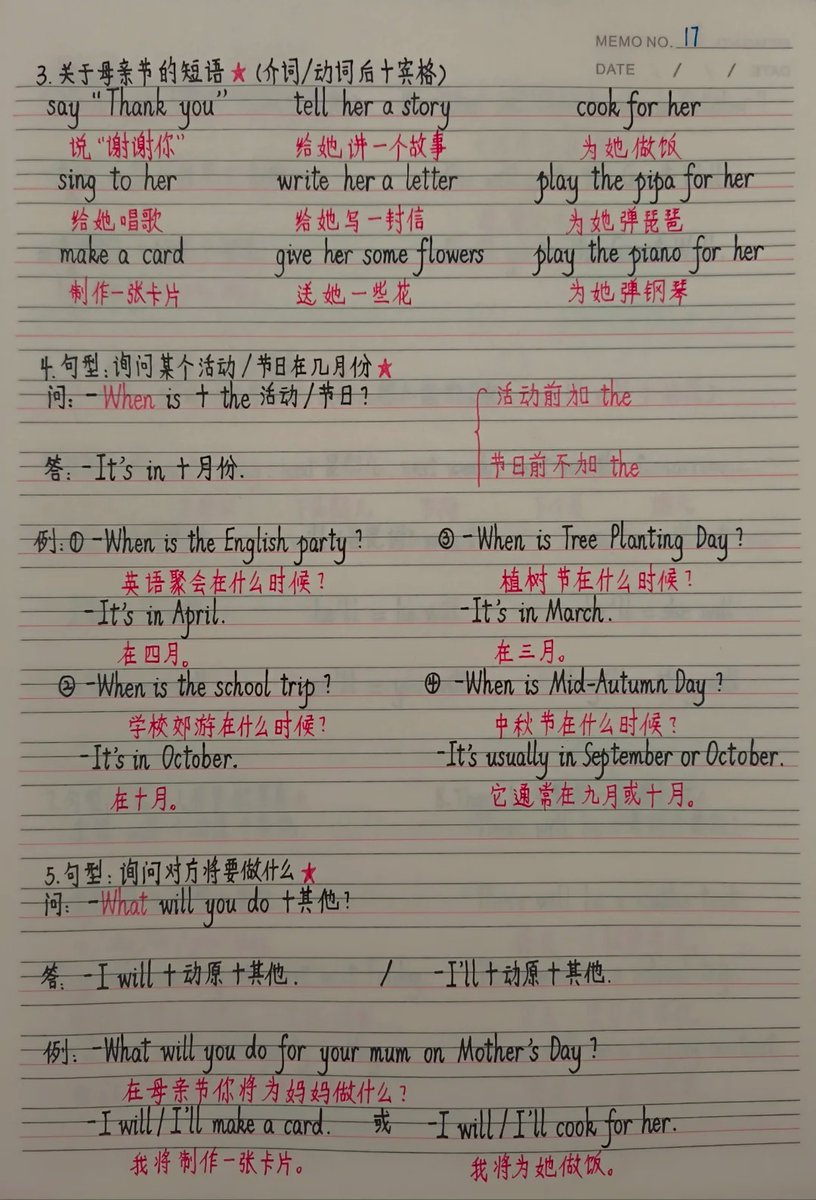 MEMO NO. 17
DATE / /
3. 关于母亲节的短语★ (介词/动词后+宾格)
say “Thank you” tell her a story cook for her
说“谢谢你” 给她讲一个故事 为她做饭
sing to her write her a letter play the pipa for her
给她唱歌 给她写一封信 为她弹琵琶
make a card give her some flowers play the piano for her
制作一张卡片 送她一些花 为她弹钢琴
4. 句型: 询问某个活动/节日在几月份★
问: -When is + the 活动/节日? 活动前加 the
答: -It's in +月份. 节日前不加 the
例: ① -When is the English party? ③ -When is Tree Planting Day?
英语聚会在什么时候? 植树节在什么时候?
-It's in April. -It's in March.
在四月。 在三月。
② -When is the school trip? ④ -When is Mid-Autumn Day?
学校郊游在什么时候? 中秋节在什么时候?
-It's in October. -It's usually in September or October.
在十月。 它通常在九月或十月。
5. 句型: 询问对方将要做什么★
问: -What will you do +其他?
答: -I will +动原+其他. / -I'll+动原+其他.
例: -What will you do for your mum on Mother's Day?
在母亲节你将为妈妈做什么?
-I will/I'll make a card. 或 -I will/I'll cook for her.
我将制作一张卡片。 我将为她做饭。